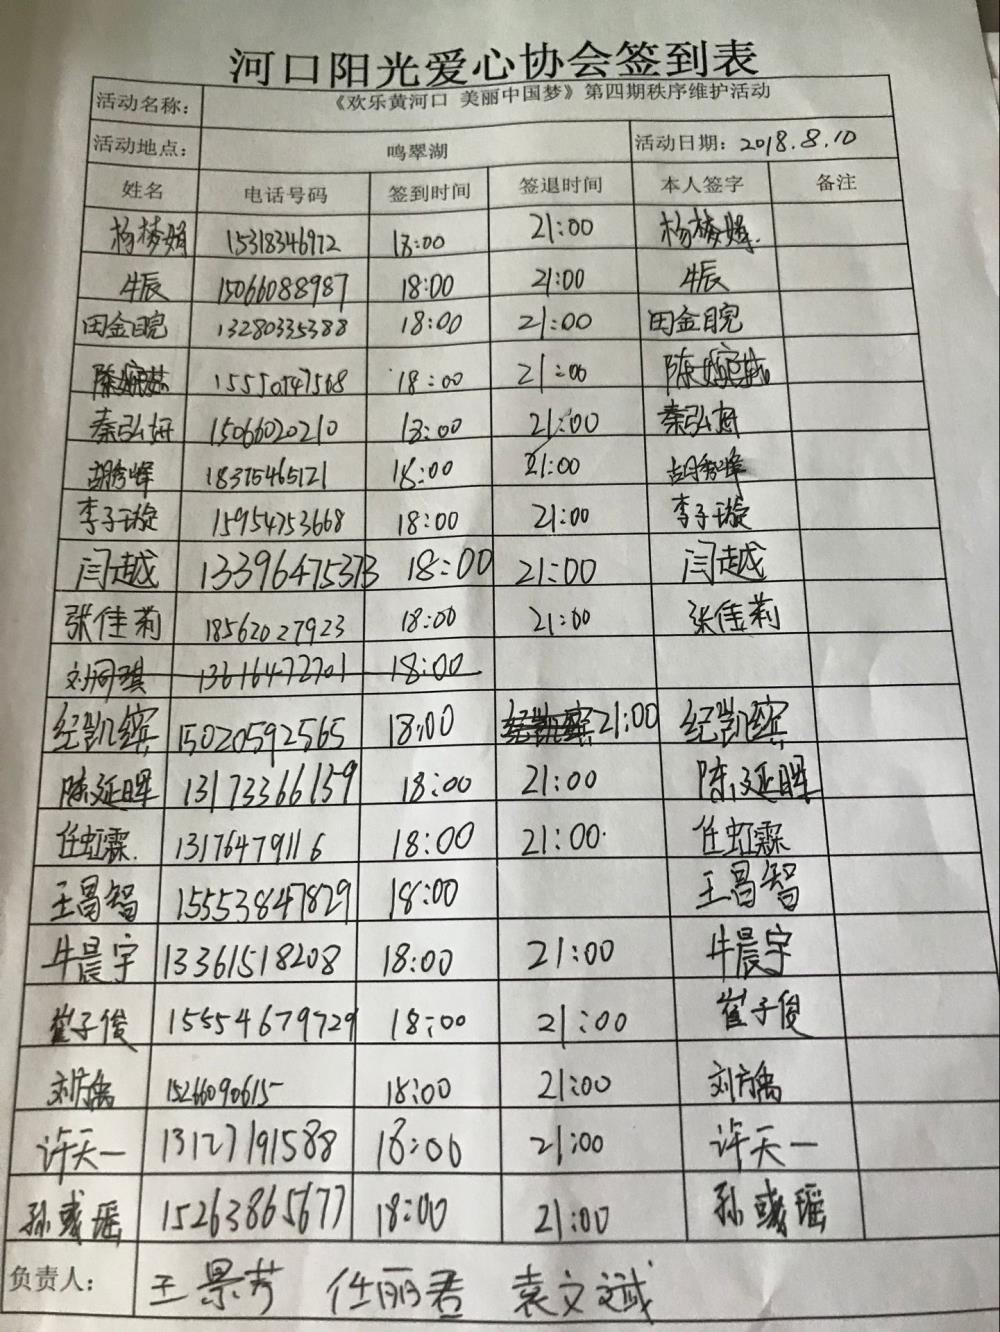 河口阳光爱心协会签到表
活动名称： 《欢乐黄河口 美丽中国梦》第四期秩序维护活动
活动地点： 鸣翠湖 活动日期：2018.8.10
姓名 电话号码 签到时间 签退时间 本人签字 备注
杨梦娟 15318346972 18:00 21:00 杨梦娟.
牛辰 15066088987 18:00 21:00 牛辰
田金睆 13280335388 18:00 21:00 田金睆
陈婉茹 15550147568 18:00 21:00 陈
秦弘妍 15066020210 18:00 21:00 秦弘妍
胡秀峰 18375465121 18:00 21:00 胡秀峰
李子璇 15954753668 18:00 21:00 李子璇
闫越 1339647537 18:00 21:00 闫越
张佳莉 18562027923 18:00 21:00 张佳莉
刘同琪 13616472701 18:00
纪凯缤 15020592565 18:00 纪凯缤 21:00 纪凯缤
陈延晖 13173366159 18:00 21:00 陈延晖
任虹霖. 13176479116 18:00 21:00 任虹霖
王昌智 15553847829 18:00 王昌智
牛晨宇 13361518208 18:00 21:00 牛晨宇
崔子俊 15554679729 18:00 21:00 崔子俊
刘方禹 15266090615 18:00 21:00 刘方禹
许天一 13127191588 18:00 21:00 许天一
孙彧瑶 15263865677 18:00 21:00 孙彧瑶
负责人： 王景芳 任丽君 袁文斌